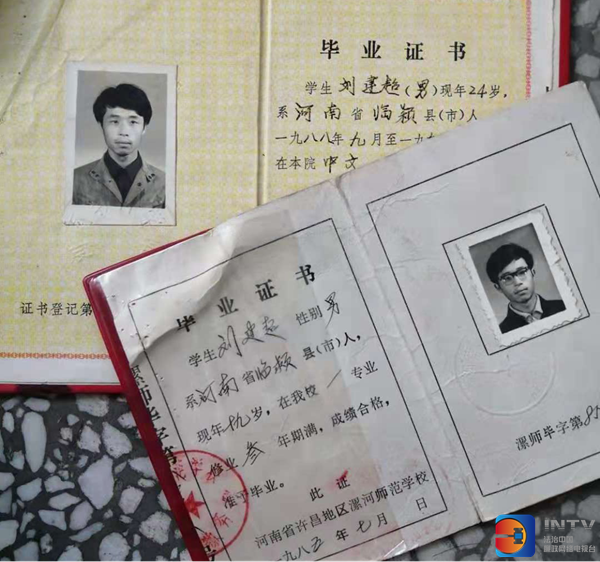 毕业证书
学生刘建超(男)现年24岁,
系河南省临颍县(市)人
一九八八年九月至一九
在本院中文
证书登记第
毕业证书
学生刘建超 性别男
系河南省临颍县(市)人,
现年十九岁,在我校一专业
修业叁年期满,成绩合格,
准予毕业。
此证
河南省许昌地区漯河师范学校
一九八五年七月 日
漯师毕字第85
INTV
法治中国